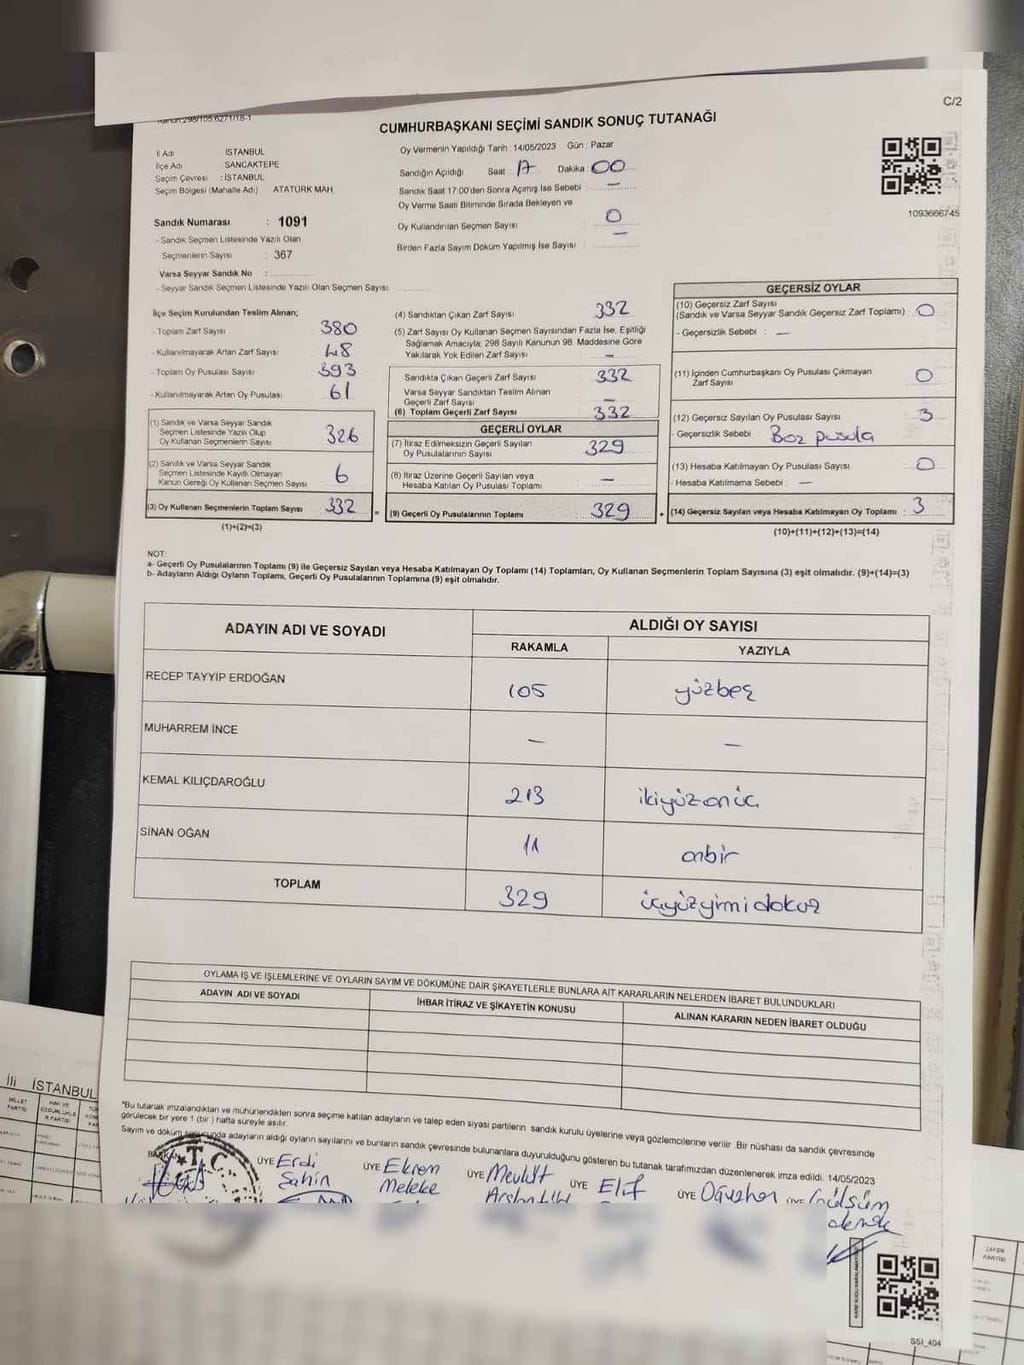 C/2
Kanun:298/105,6271/18-1
CUMHURBAŞKANI SEÇİMİ SANDIK SONUÇ TUTANAĞI
İl Adı İSTANBUL
İlçe Adı SANCAKTEPE
Seçim Çevresi : İSTANBUL
Seçim Bölgesi (Mahalle Adı) ATATÜRK MAH.
Sandık Numarası : 1091
- Sandık Seçmen Listesinde Yazılı Olan
Seçmenlerin Sayısı : 367
Varsa Seyyar Sandık No :
- Seyyar Sandık Seçmen Listesinde Yazılı Olan Seçmen Sayısı:
Oy Vermenin Yapıldığı Tarih : 14/05/2023 Gün : Pazar
Sandığın Açıldığı Saat 17 Dakika 00
Sandık Saat 17:00'den Sonra Açımış İse Sebebi : —
Oy Verme Saati Bitiminde Sırada Bekleyen ve
Oy Kullandırılan Seçmen Sayısı : 0
Birden Fazla Sayım Döküm Yapılmış İse Sayısı : —
1093666745
İlçe Seçim Kurulundan Teslim Alınan;
- Toplam Zarf Sayısı 380
- Kullanılmayarak Artan Zarf Sayısı : 48
- Toplam Oy Pusulası Sayısı : 393
- Kullanılmayarak Artan Oy Pusulası : 61
(1) Sandık ve Varsa Seyyar Sandık
Seçmen Listesinde Yazılı Olup
Oy Kullanan Seçmenlerin Sayısı : 326
(2) Sandık ve Varsa Seyyar Sandık
Seçmen Listesinde Kayıtlı Olmayan
Kanun Gereği Oy Kullanan Seçmen Sayısı : 6
(3) Oy Kullanan Seçmenlerin Toplam Sayısı : 332
(1)+(2)=(3)
(4) Sandıktan Çıkan Zarf Sayısı : 332
(5) Zarf Sayısı Oy Kullanan Seçmen Sayısından Fazla İse, Eşitliği
Sağlamak Amacıyla; 298 Sayılı Kanunun 98. Maddesine Göre
Yakılarak Yok Edilen Zarf Sayısı : —
Sandıkta Çıkan Geçerli Zarf Sayısı : 332
Varsa Seyyar Sandıktan Teslim Alınan
Geçerli Zarf Sayısı : —
(6) Toplam Geçerli Zarf Sayısı : 332
GEÇERLİ OYLAR
(7) İtiraz Edilmeksizin Geçerli Sayılan
Oy Pusulalarının Sayısı : 329
(8) İtiraz Üzerine Geçerli Sayılan veya
Hesaba Katılan Oy Pusulası Toplamı : —
= (9) Geçerli Oy Pusulalarının Toplamı : 329
GEÇERSİZ OYLAR
(10) Geçersiz Zarf Sayısı
(Sandık ve Varsa Seyyar Sandık Geçersiz Zarf Toplamı) : 0
- Geçersizlik Sebebi : —
(11) İçinden Cumhurbaşkanı Oy Pusulası Çıkmayan
Zarf Sayısı : 0
(12) Geçersiz Sayılan Oy Pusulası Sayısı : 3
- Geçersizlik Sebebi : Boz pusula
(13) Hesaba Katılmayan Oy Pusulası Sayısı : 0
- Hesaba Katılmama Sebebi : —
+ (14) Geçersiz Sayılan veya Hesaba Katılmayan Oy Toplamı : 3
(10)+(11)+(12)+(13)=(14)
NOT:
a- Geçerli Oy Pusulalarının Toplamı (9) ile Geçersiz Sayılan veya Hesaba Katılmayan Oy Toplamı (14) Toplamları, Oy Kullanan Seçmenlerin Toplam Sayısına (3) eşit olmalıdır. (9)+(14)=(3)
b- Adayların Aldığı Oyların Toplamı, Geçerli Oy Pusulalarının Toplamına (9) eşit olmalıdır.
ADAYIN ADI VE SOYADI ALDIĞI OY SAYISI
RAKAMLA YAZIYLA
RECEP TAYYİP ERDOĞAN 105 yüzbeş
MUHARREM İNCE — —
KEMAL KILIÇDAROĞLU 213 ikiyüzonüç
SİNAN OĞAN 11 onbir
TOPLAM 329 üçyüzyirmidokuz
OYLAMA İŞ VE İŞLEMLERİNE VE OYLARIN SAYIM VE DÖKÜMÜNE DAİR ŞİKAYETLERLE BUNLARA AİT KARARLARIN NELERDEN İBARET BULUNDUKLARI
ADAYIN ADI VE SOYADI İHBAR İTİRAZ VE ŞİKAYETİN KONUSU ALINAN KARARIN NEDEN İBARET OLDUĞU
*Bu tutanak imzalandıktan ve mühürlendikten sonra seçime katılan adayların ve talep eden siyasi partilerin sandık kurulu üyelerine veya gözlemcilerine verilir .Bir nüshası da sandık çevresinde
görülecek bir yere 1 (bir ) hafta süreyle asılır.
Sayım ve döküm sonucunda adayların aldığı oyların sayılarını ve bunların sandık çevresinde bulunanlara duyurulduğunu gösteren bu tutanak tarafımızdan düzenlenerek imza edildi. 14/05/2023
BAŞKAN T.C. ÜYE Erdi ÜYE Ekrem ÜYE Mevlüt ÜYE Elif ÜYE Oğuzhan ÜYE Gülsüm
Şahin Meleke
İli İSTANBUL
MİLLET PARTİSİ
ZAFER PARTİSİ
SSI_404